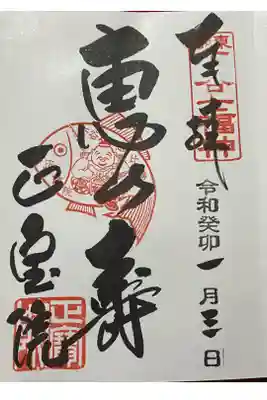 下谷七福神
奉拝
令和癸卯一月三日
恵比寿
正宝院
正寶院